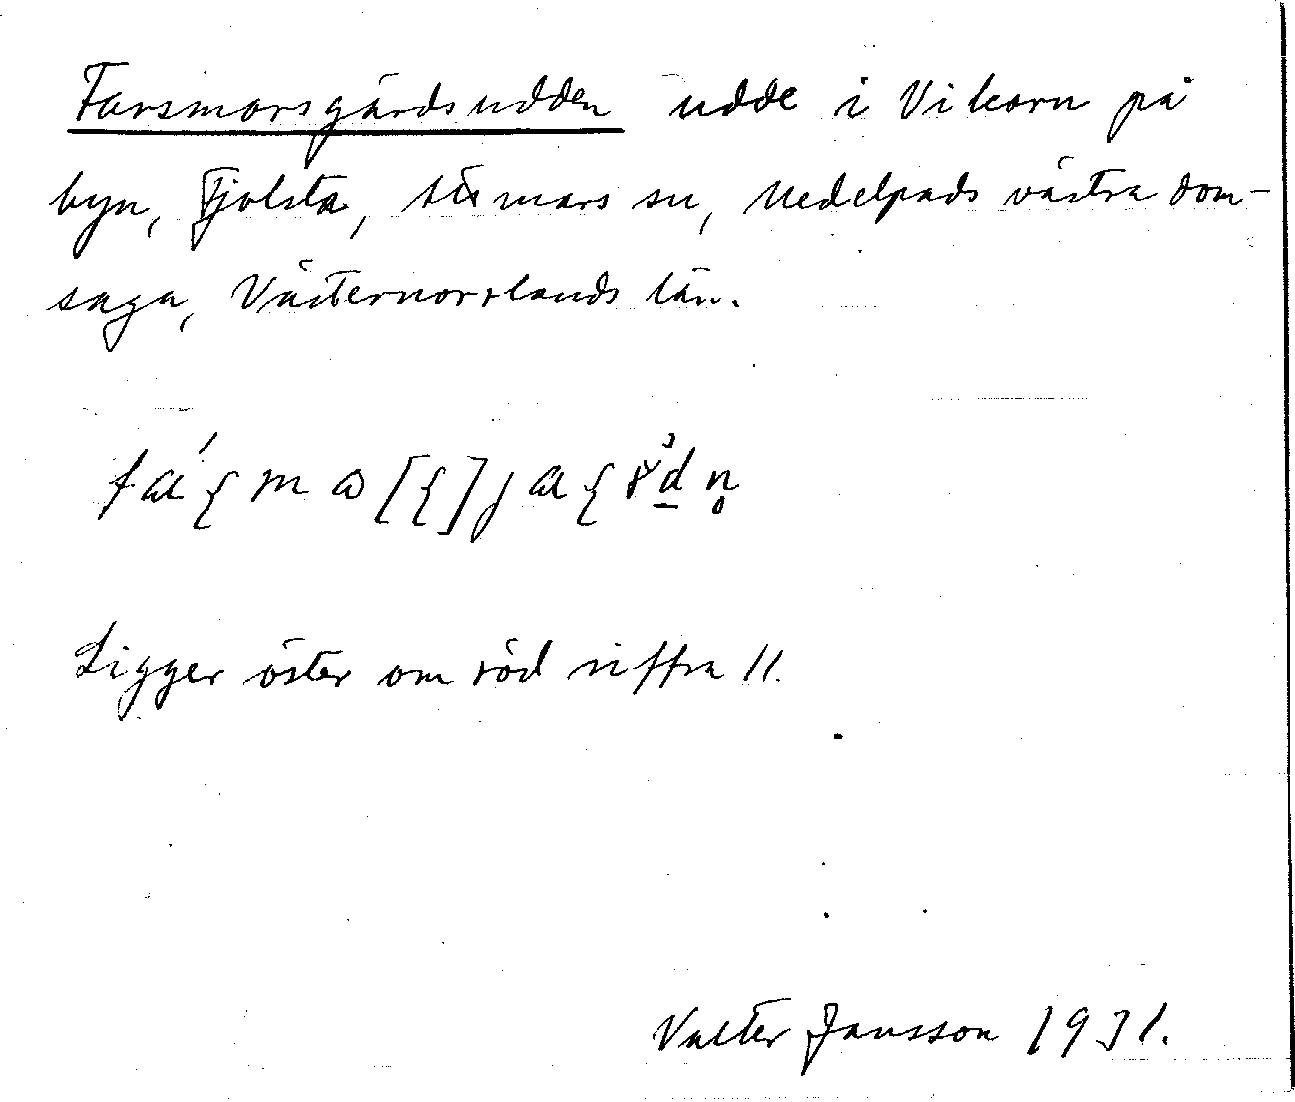 Farsmorsgårdsudden udde i Vikarn på
byn, Fjolsta, Attmars sn, Medelpads västra dom-
saga, Västernorrlands län.
Ligger öster om röd siffra 11.
Valter Jansson 1931.